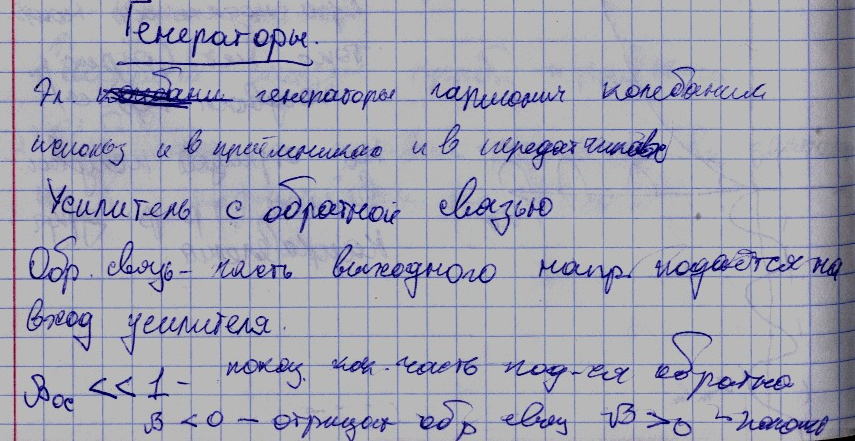 Генераторы.
Эл. генераторы гармонич колебаний
использ и в приёмниках и в передатчиках
Усилитель с обратной связью
Обр. связь - часть выходного напр. подаётся на
вход усилителя.
βос << 1 - показ. как. часть под-ся обратно
β < 0 - отрицат обр связ β > 0 -